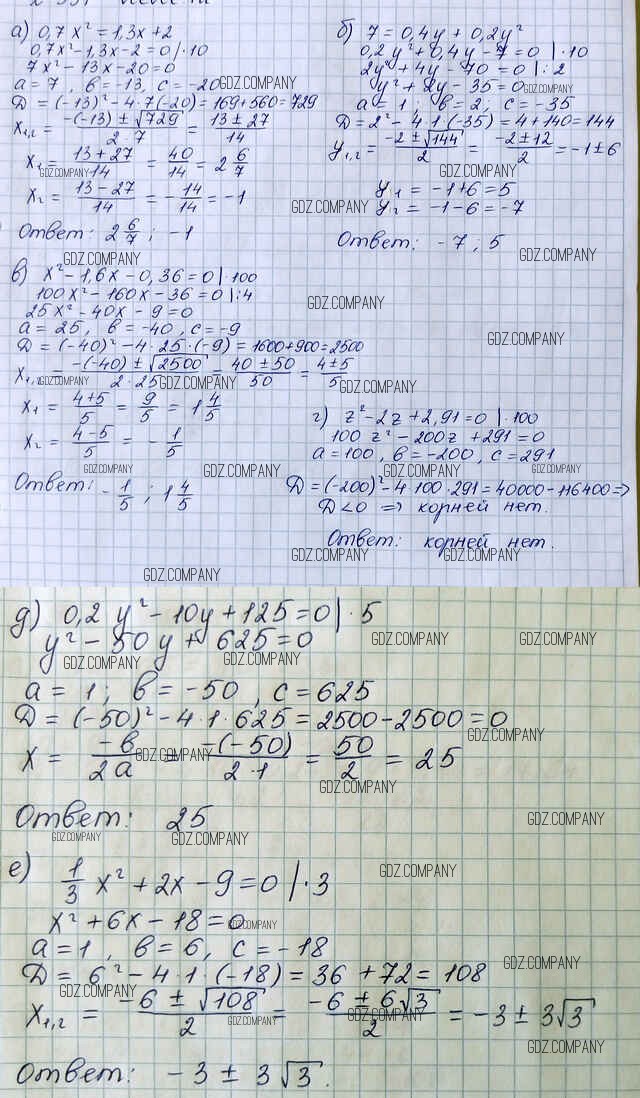 а) 0,7x² = 1,3x + 2
0,7x² - 1,3x - 2 = 0 | · 10
7x² - 13x - 20 = 0
a = 7, b = -13, c = -20
D = (-13)² - 4 · 7 (-20) = 169 + 560 = 729
x₁,₂ = (-(-13) ± √729) / (2 · 7) = (13 ± 27) / 14
x₁ = (13 + 27) / 14 = 40/14 = 2 6/7
x₂ = (13 - 27) / 14 = - 14/14 = -1
Ответ: 2 6/7 ; -1
б) 7 = 0,4y + 0,2y²
0,2y² + 0,4y - 7 = 0 | · 10
2y² + 4y - 70 = 0 | : 2
y² + 2y - 35 = 0
a = 1; b = 2; c = -35
D = 2² - 4 · 1 · (-35) = 4 + 140 = 144
y₁,₂ = (-2 ± √144) / 2 = (-2 ± 12) / 2 = -1 ± 6
y₁ = -1 + 6 = 5
y₂ = -1 - 6 = -7
Ответ: -7 ; 5
в) x² - 1,6x - 0,36 = 0 | · 100
100x² - 160x - 36 = 0 | : 4
25x² - 40x - 9 = 0
a = 25, b = -40, c = -9
D = (-40)² - 4 · 25 · (-9) = 1600 + 900 = 2500
x₁,₂ = (-(-40) ± √2500) / (2 · 25) = (40 ± 50) / 50 = (4 ± 5) / 5
x₁ = (4 + 5) / 5 = 9/5 = 1 4/5
x₂ = (4 - 5) / 5 = - 1/5
Ответ: - 1/5 ; 1 4/5
г) z² - 2z + 2,91 = 0 | · 100
100z² - 200z + 291 = 0
a = 100, b = -200, c = 291
D = (-200)² - 4 · 100 · 291 = 40000 - 116400 =>
D < 0 => корней нет.
Ответ: корней нет.
д) 0,2y² - 10y + 125 = 0 | · 5
y² - 50y + 625 = 0
a = 1; b = -50, c = 625
D = (-50)² - 4 · 1 · 625 = 2500 - 2500 = 0
x = -b / 2a = -(-50) / (2 · 1) = 50/2 = 25
Ответ: 25
е) 1/3 x² + 2x - 9 = 0 | · 3
x² + 6x - 18 = 0
a = 1, b = 6, c = -18
D = 6² - 4 · 1 · (-18) = 36 + 72 = 108
x₁,₂ = (-6 ± √108) / 2 = (-6 ± 6√3) / 2 = -3 ± 3√3
Ответ: -3 ± 3√3.
GDZ.COMPANY